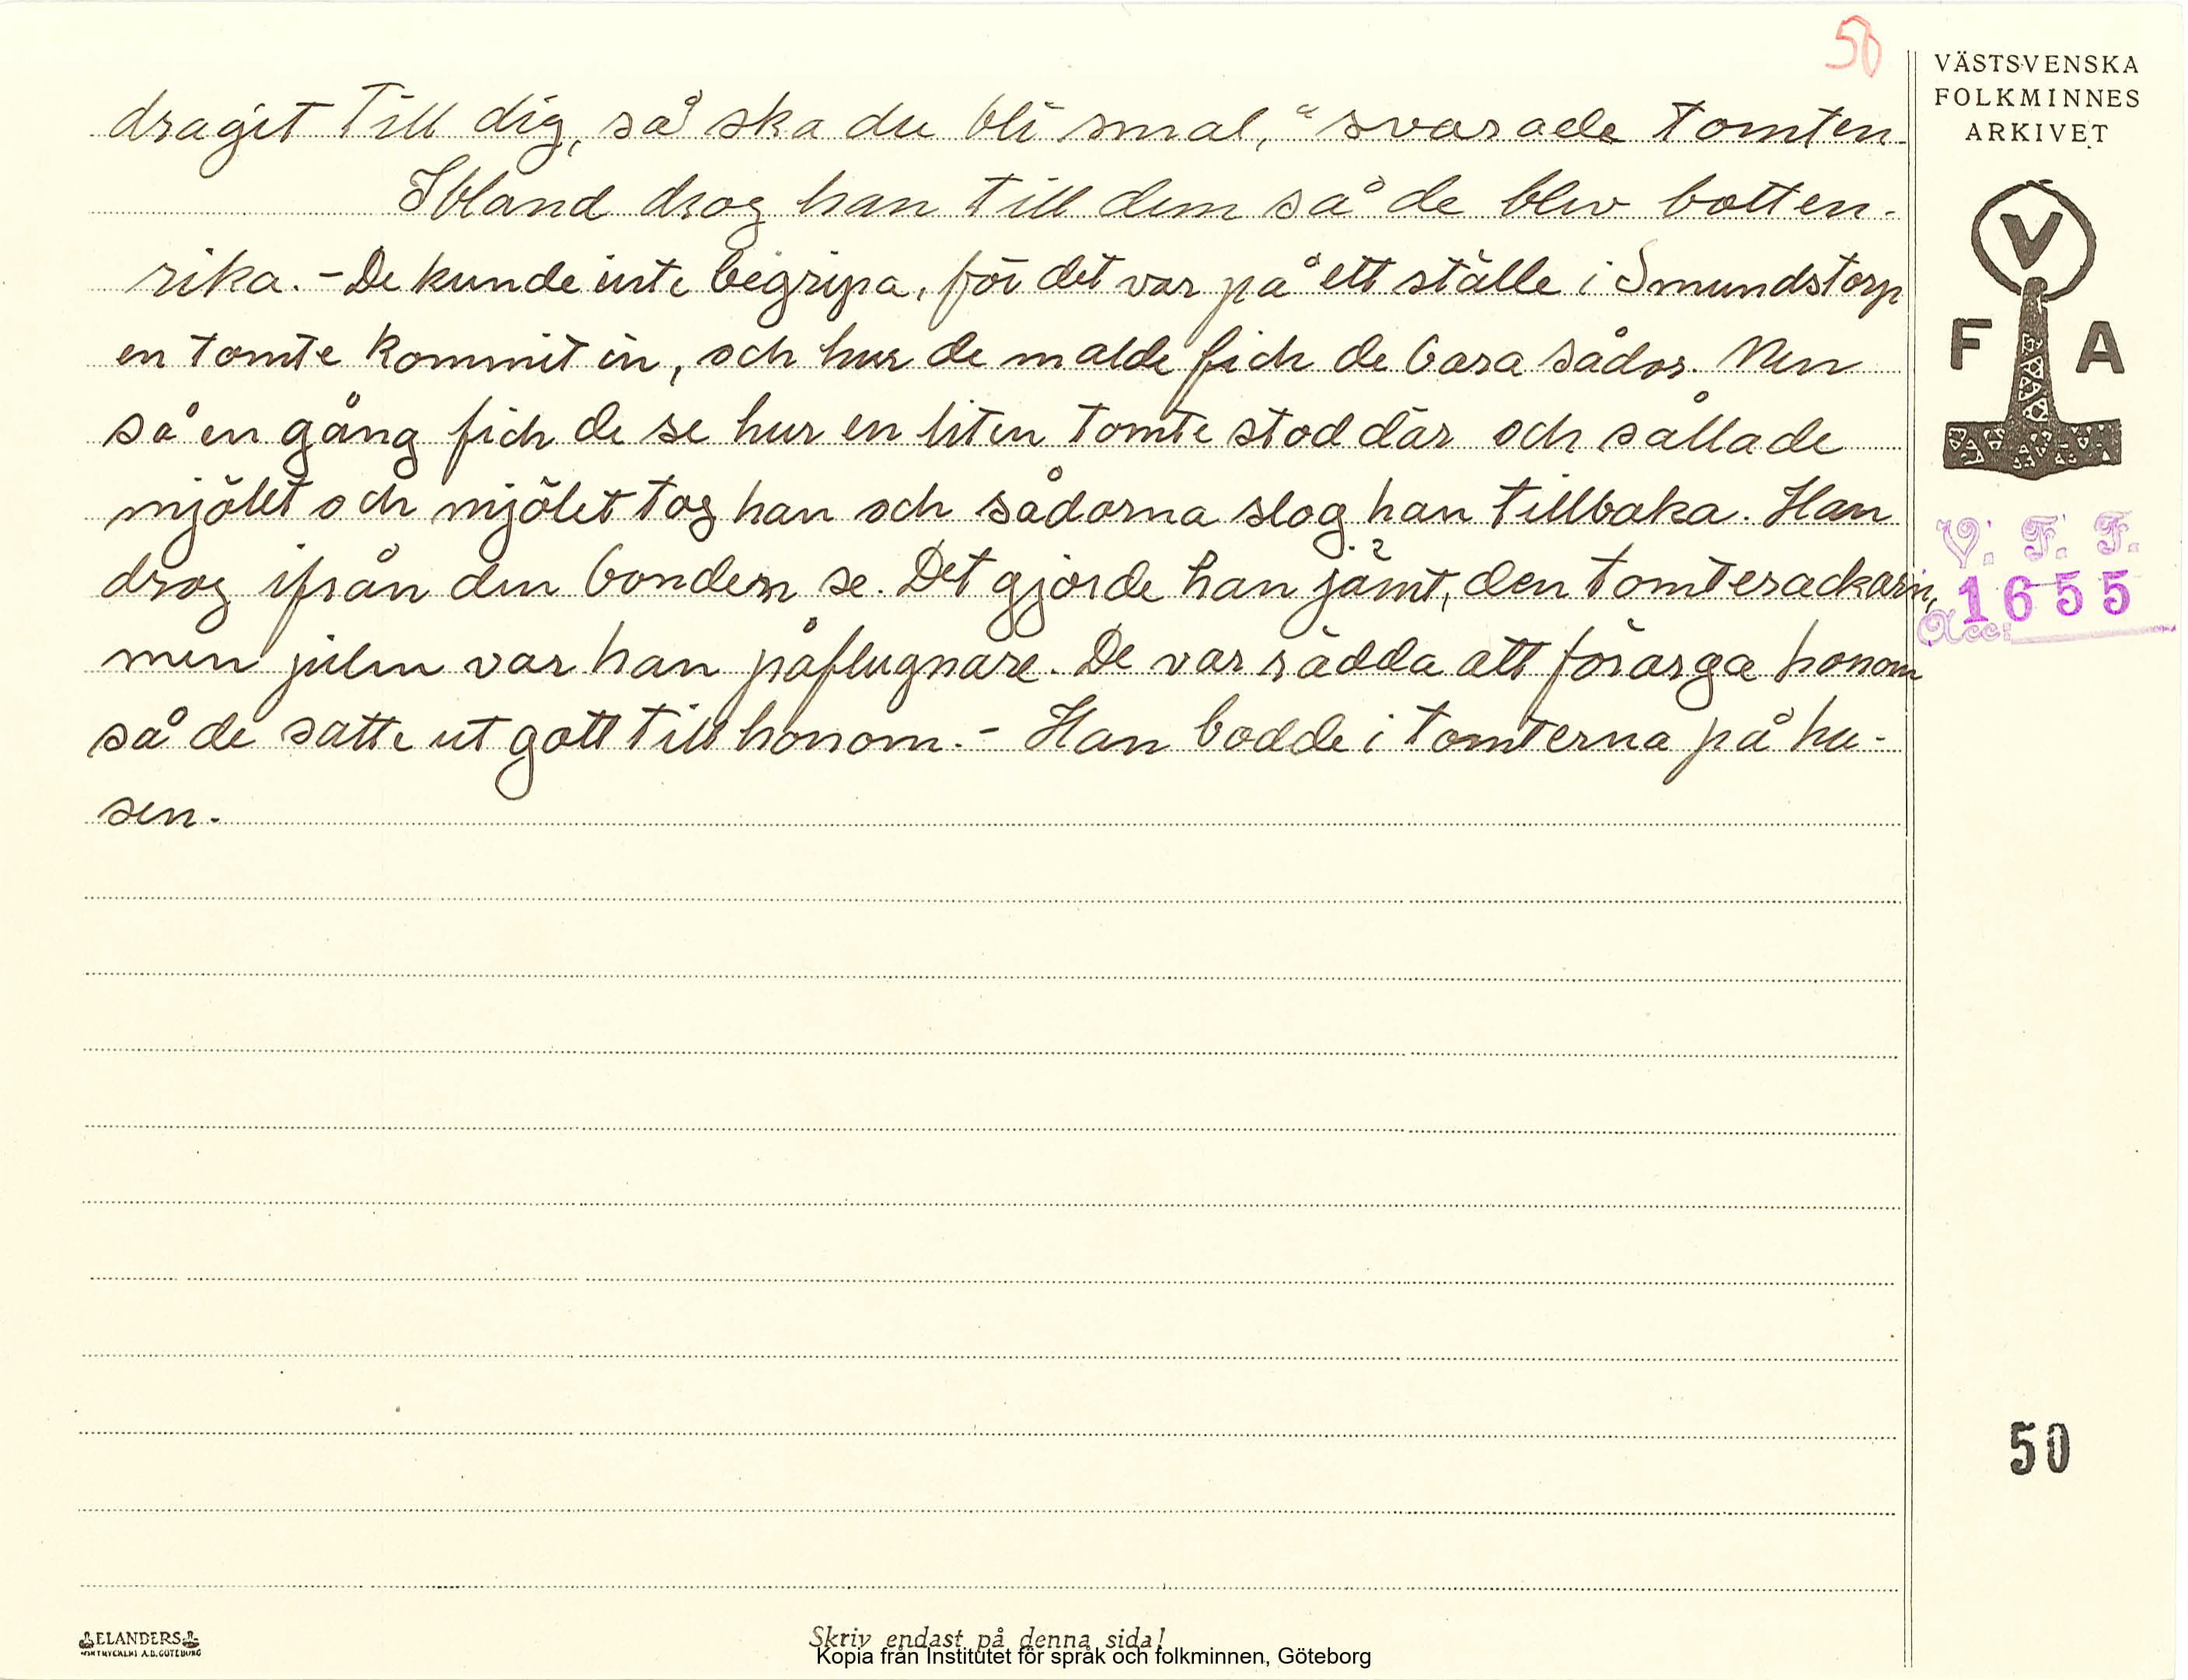 50
VÄSTSVENSKA
FOLKMINNES
ARKIVET
V
F A
V. F. F.
Acc: 1655
draget till dig, så ska du bli smal," svarade tomten.
Ibland drog han till dem så de blev botten-
rika. - De kunde inte begripa, för det var på ett ställe i Smundstorp
en tomte kommit in, och hur de malde fick de bara sådor. Men
så en gång fick de se hur en liten tomte stod där och sållade
mjölet och mjölet tog han och sådorna slog han tillbaka. Han
drog ifrån den bonden se. Det gjorde han jämt, den tomterackarn,
men julen var han påflugnare. De var rädda att förarga honom
så de satte ut gott till honom. - Han bodde i tomterna på hu-
sen.
50
ELANDERS
BOKTRYCKERI A.B. GÖTEBORG
Skriv endast på denna sida!
Kopia från Institutet för språk och folkminnen, Göteborg